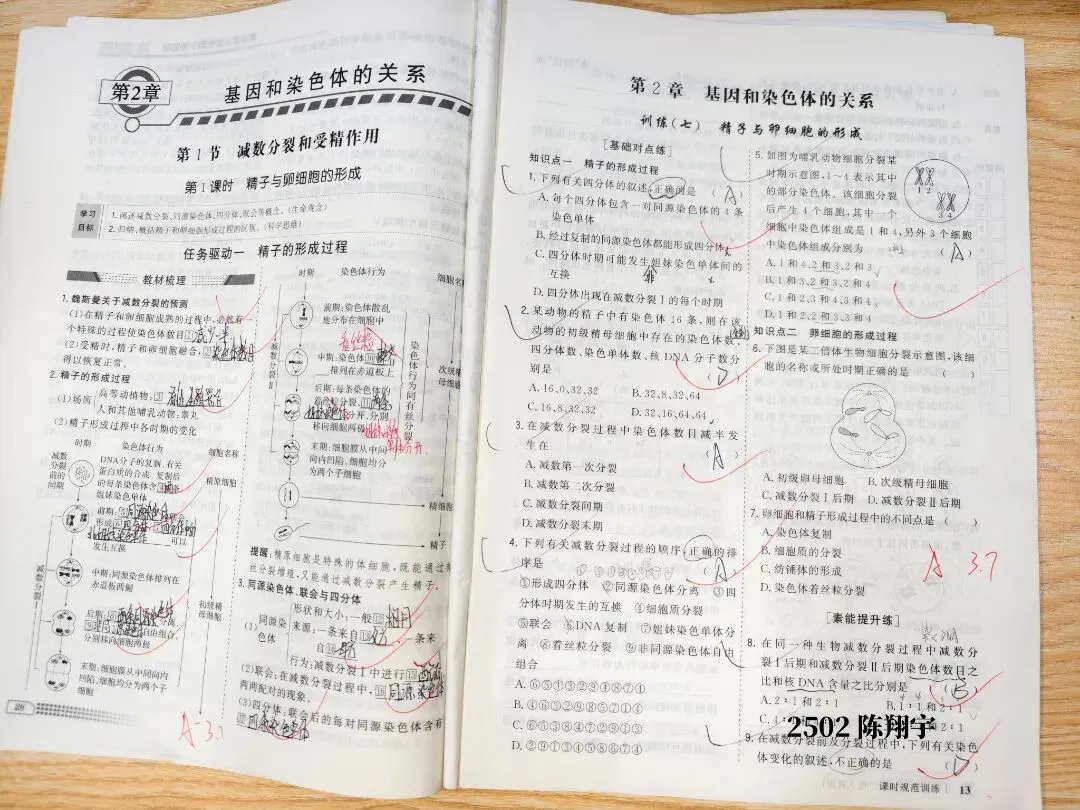 第2章 基因和染色体的关系
第1节 减数分裂和受精作用
第1课时 精子与卵细胞的形成
学习目标
1.阐述减数分裂、同源染色体、四分体、联会等概念。(生命观念)
2.归纳、概括精子和卵细胞形成过程的区别。(科学思维)
任务驱动一 精子的形成过程
教材梳理
1.魏斯曼关于减数分裂的预测
(1)在精子和卵细胞成熟的过程中,必然有
一个特殊的过程使染色体数目①减少一半
(2)受精时,精子和卵细胞融合,②染色体数目
得以恢复正常。
2.精子的形成过程
(1)场所
高等动植物:③
人和其他哺乳动物:睾丸
(2)精子形成过程中各时期的变化
时期 染色体行为 细胞名称
减数分裂前的间期
DNA分子的复制,有关
蛋白质的合成,复制后
的每条染色体含④两条
姐妹染色单体
精原细胞
减数分裂Ⅰ
前期:⑤同源染色体
形成⑥四分体
可以
发生互换
中期:同源染色体排列在
赤道板两侧
后期:
分离,
自由组合,
分别移向细胞两极
末期:细胞膜从中间向内
凹陷,细胞均分为两个子
细胞
初级精母细胞
28
A 3.7
时期 染色体行为 细胞名称
减数分裂Ⅱ
前期:染色体散乱
地分布在细胞中
着丝粒
中期:染色体⑩
排列在赤道板上
后期:每条染色体的
着丝粒分裂,⑪
分开,分别
移向细胞两极
末期:细胞膜从中间
向内凹陷,细胞均分
为两个子细胞
染色体行为同有丝分裂
次级精母细胞
精细胞
精子
提醒:精原细胞是特殊的体细胞,既能通过有
丝分裂增殖,又能通过减数分裂产生精子。
3.同源染色体、联会与四分体
(1)同源染色体
形状和大小:一般⑫相同
来源:一条来自⑬父方,一条来
自⑭母方
行为:减数分裂Ⅰ中进行⑮两两配对
(2)联会:在减数分裂过程中,⑯同源染色体
两两配对的现象。
(3)四分体:联会后的每对同源染色体含有
⑰四条染色单体
第2章 基因和染色体的关系
训练(七) 精子与卵细胞的形成
[基础对点练]
知识点一 精子的形成过程
1.下列有关四分体的叙述,正确的是 (A)
A.每个四分体包含一对同源染色体的4条
染色单体
B.经过复制的同源染色体都能形成四分体
C.四分体时期可能发生姐妹染色单体间的
互换 非
D.四分体出现在减数分裂Ⅰ的每个时期
2.某动物的精子中有染色体16条,则在该
动物的初级精母细胞中存在的染色体数、
四分体数、染色单体数、核DNA分子数分
别是 (D)
A.16,0,32,32 B.32,8,32,64
C.16,8,32,32 D.32,16,64,64
3.在减数分裂过程中染色体数目减半发
生在 (A)
A.减数第一次分裂
B.减数第二次分裂
C.减数分裂间期
D.减数分裂末期
4.下列有关减数分裂过程的顺序,正确的排
序是 (A)
①形成四分体 ②同源染色体分离 ③四
分体时期发生的互换 ④细胞质分裂
⑤联会 ⑥DNA复制 ⑦姐妹染色单体分
离 ⑧着丝粒分裂 ⑨非同源染色体自由
组合
A.⑥⑤①③②⑨④⑧⑦④
B.④⑥⑤③②⑨⑧⑦①④
C.⑥⑤③⑧④⑦②⑨①④
D.②⑨①③④⑤⑧⑥⑦④
5.如图为哺乳动物细胞分裂某
时期示意图,1~4表示其中
的部分染色体。该细胞分裂
后产生4个细胞,其中一个
细胞中染色体组成是1和4,另外3个细胞
中染色体组成分别为 (A)
1 2
3 4
A.1和4、2和3、2和3
B.1和3、2和4、2和3
C.1和2、3和4、3和4
D.1和3、2和4、1和3
知识点二 卵细胞的形成过程
6.下图是某二倍体生物细胞分裂示意图,该细
胞的名称或所处时期正确的是 ( )
A.初级卵母细胞 B.次级精母细胞
C.减数分裂Ⅰ后期 D.减数分裂Ⅱ后期
7.卵细胞和精子形成过程中的不同点是 ( )
A.染色体复制
B.细胞质的分裂
C.纺锤体的形成
D.染色体着丝粒分裂
A 3.7
[素能提升练]
8.在同一种生物减数分裂过程中减数分
裂Ⅰ后期和减数分裂Ⅱ后期染色体数目之
比和核DNA含量之比分别是 (B)
A.2∶1和2∶1
2502 陈翔宇
9.在减数分裂前及分裂过程中,下列有关染色
体变化的叙述,不正确的是 (D)
课时规范训练 13